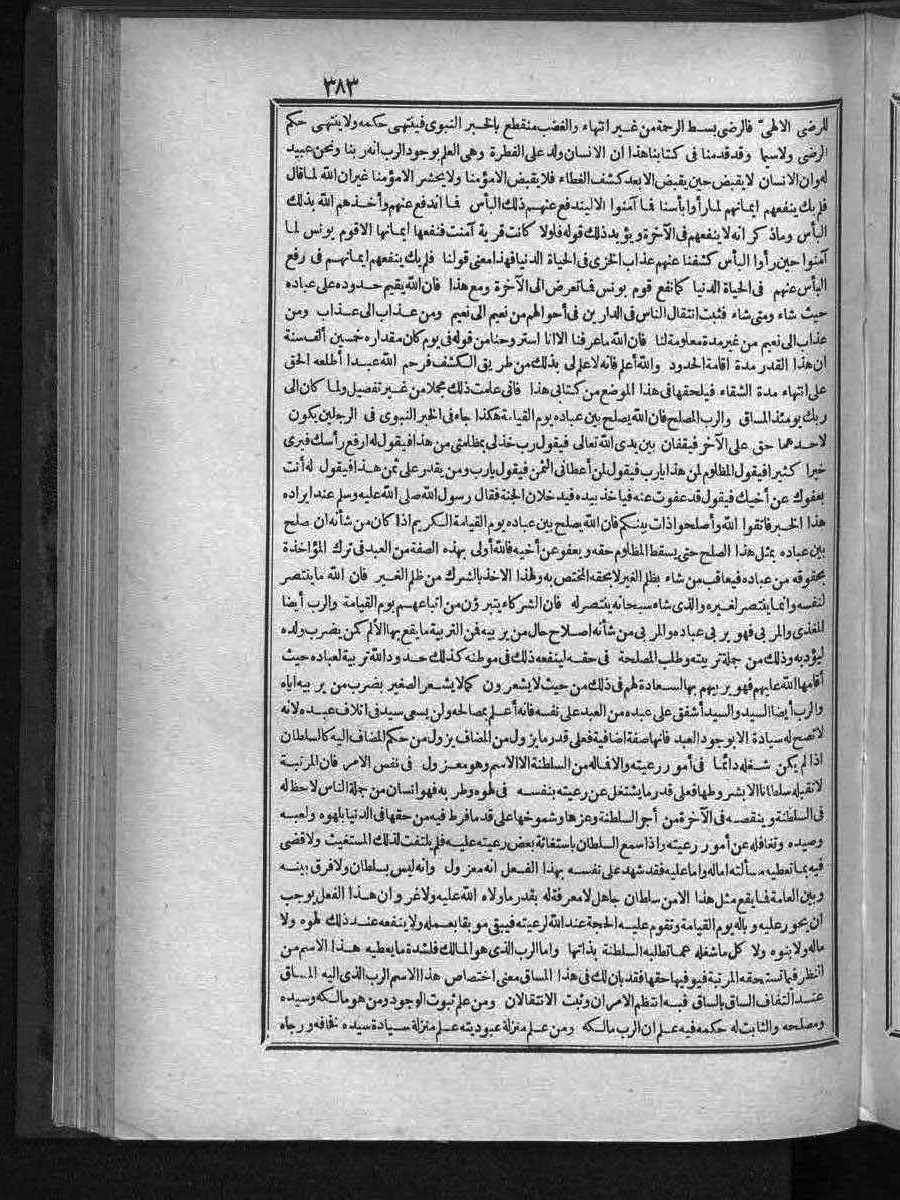 ٣٨٣
للرضى الالهىّ فالرضى بسط الرحمة من غير انتهاء والغضب منقطع بالخبر النبوى فينتهى حكمه ولا ينتهى حكم
الرضى ولاسيما وقد قدمنا فى كتابنا هذا ان الانسان ولد على الفطرة وهى العلم بوجود الرب انه ربنا ونحن عبيد
له وان الانسان لا يقبض حين يقبض الا بعد كشف الغطاء فلا يقبض الا مؤمنا ولا يحشر الا مؤمنا غير ان الله لما قال
فلم يك ينفعهم ايمانهم لما رأوا بأسنا فما آمنوا الا ليندفع عنهم ذلك البأس فما اندفع عنهم وأخذهم الله بذلك
البأس وما ذكر انه لا ينفعهم فى الآخرة ويؤيد ذلك قوله فلولا كانت قرية آمنت فنفعها ايمانها الا قوم يونس لما
آمنوا حين رأوا البأس كشفنا عنهم عذاب الخزى فى الحياة الدنيا فهذا معنى قولنا فلم يك ينفعهم ايمانهم فى رفع
البأس عنهم فى الحياة الدنيا كما نفع قوم يونس فما تعرض الى الآخرة ومع هذا فان الله يقيم حدوده على عباده
حيث شاء ومتى شاء فثبت انتقال الناس فى الدارين فى أحوالهم من نعيم الى نعيم ومن عذاب الى عذاب ومن
عذاب الى نعيم من غير مدة معلومة لنا فان الله ما عرفنا الا انا استروحنا من قوله فى يوم كان مقداره خمسين ألف سنة
ان هذا القدر مدة اقامة الحدود والله أعلم فانه لا علم لى بذلك من طريق الكشف فرحم الله عبدا أطلعه الحق
على انتهاء مدة الشقاء فيلحقها فى هذا الموضع من كتابى هذا فانى علمت ذلك مجملا من غير تفصيل ولما كان الى
ربك يومئذ المساق والرب المصلح فان الله يصلح بين عباده يوم القيامة هكذا جاء فى الخبر النبوى فى الرجلين يكون
لاحدهما حق على الآخر فيقفان بين يدى الله تعالى فيقول رب خذ لى بمظلمتى من هذا فيقول له ارفع رأسك فيرى
خيرا كثيرا فيقول المظلوم لمن هذا يارب فيقول لمن أعطانى الثمن فيقول يارب ومن يقدر على ثمن هذا فيقول له أنت
بعفوك عن أخيك فيقول قد عفوت عنه فياخذ بيده فيدخلان الجنة فقال رسول الله صلى الله عليه وسلم عند ايراده
هذا الخبر فاتقوا الله وأصلحوا ذات بينكم فان الله يصلح بين عباده يوم القيامة الكريم اذا كان من شأنه ان صلح
بين عباده بمثل هذا الصلح حتى يسقط المظلوم حقه ويعفو عن أخيه فالله أولى بهذه الصفة من العبد فى ترك المؤاخذة
بحقوقه من عباده فيعاقب من شاء بظلم الغير لا بحقه المختص به ولهذا الاخذ بالشرك من ظلم الغير فان الله ما ينتصر
لنفسه وانما ينتصر لغيره والذى شاء سبحانه ينتصر له فان الشركاء يتبرؤن من اتباعهم يوم القيامة والرب أيضا
المغذى والمربى فهو يربى عباده والمربى من شأنه اصلاح حال من يربيه فمن التربية ما يقع بها الألم كمن يضرب ولده
ليؤدبه وذلك من جملة تربيته وطلب المصلحة فى حقه لينفعه ذلك فى موطنه كذلك حدود الله تربية لعباده حيث
أقامها الله عليهم فهو يربيهم بها لسعادة لهم فى ذلك من حيث لا يشعرون كما لا يشعر الصغير بضرب من يربيه اياه
والرب أيضا السيد والسيد أشفق على عبده من العبد على نفسه فانه أعلم بمصالحه ولن يسعى سيد فى اتلاف عبده لانه
لا تصح له سيادة الا بوجود العبد فانها صفة اضافية فعلى قدر ما يزول من المضاف يزول من حكم المضاف اليه كالسلطان
اذا لم يكن شغله دائما فى أمور رعيته والا فماله من السلطنة الا الاسم وهو معزول فى نفس الامر فان المرتبة
لا تقبله سلطانا الا بشروطها فعلى قدر ما يشتغل عن رعيته بنفسه فى لهوه وطربه فهو انسان من جملة الناس لاحظ له
فى السلطنة وينقصه فى الآخرة من أجر السلطنة وعزها وشموخها على قدر ما فرط فيه من حقها فى الدنيا بلهوه ولعبه
وصيده وتغافله عن أمور رعيته واذا سمع السلطان باستغاثة بعض رعيته عليه فلم يلتفت لذلك المستغيث ولا قضى
فيه بما تعطيه مسألته اما له واما عليه فقد شهد على نفسه بهذا الفعل انه معزول وانه ليس بسلطان ولا فرق بينه
وبين العامة فما يقع مثل هذا الا من سلطان جاهل لا معرفة له بقدر ما ولاه الله عليه ولا غرو ان هذا الفعل يوجب
ان يحور عليه وباله يوم القيامة وتقوم عليه الحجة عند الله لرعيته فيبقى موبقا بعمله ولا ينفعه عند ذلك لهوه ولا
ماله ولا بنوه ولا كل ما شغله عما تطلبه السلطنة بذاتها واما الرب الذى هو المالك فلشدة ما يعطيه هذا الاسم من
النظر فيما تستحقه المرتبة فيوفيها حقها فقد بان لك فى هذا المساق معنى اختصاص هذا الاسم الرب الذى اليه المساق
عند التفاف الساق بالساق فبه انتظم الامران وثبت الانتقالان ومن علم ثبوت الوجود ومن هو مالكه وسيده
ومصلحه والثابت له حكمه فيه علم ان الرب مالكه ومن علم منزلة عبوديته علم منزلة سيادة سيده فخافه ورجاه